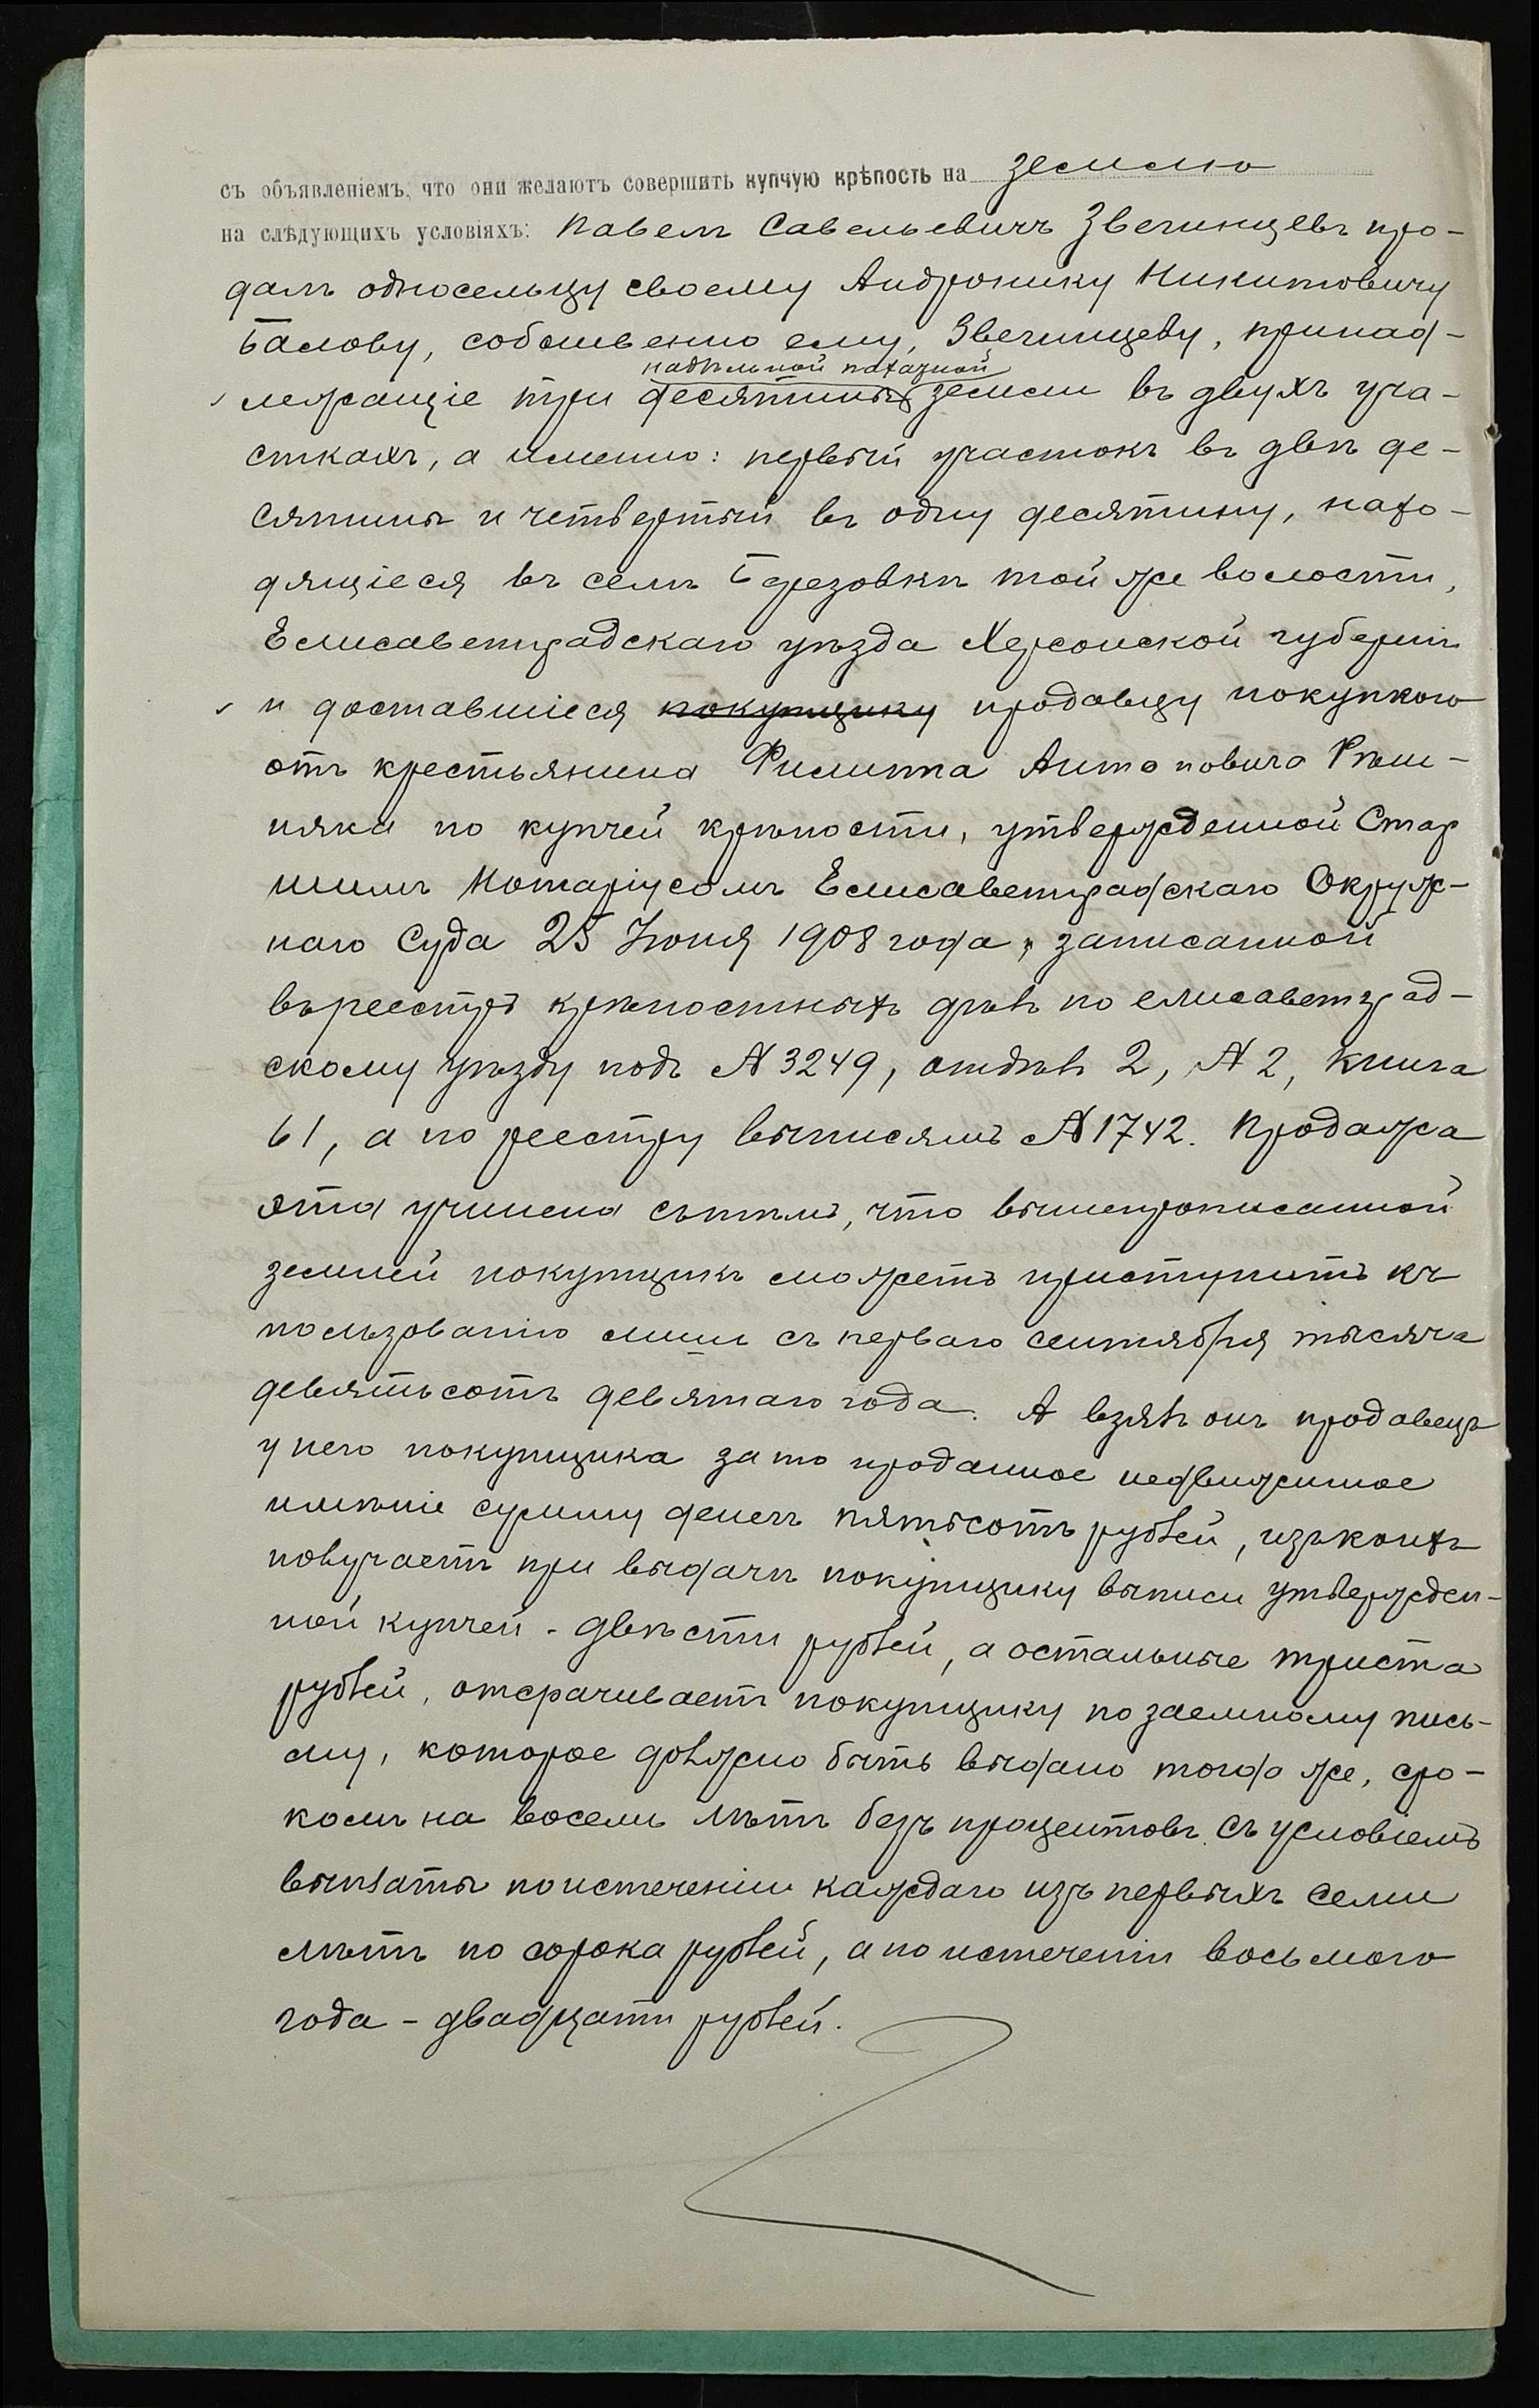 съ объявленіемъ, что они желаютъ совершить купчую крѣпость на землю
на слѣдующихъ условіяхъ: Павелъ Савельевичъ Звегинцевъ про-
далъ односельцу своему Андронику Никитовичу
Балову, собственно ему, Звегинцеву, принад-
надѣльной пахатной
лежащіе три десятины земли въ двухъ уча-
сткахъ, а именно: первый участокъ въ двѣ де-
сятины и четвертый въ одну десятину, нахо-
дящіеся въ селѣ Березовкѣ той же волости,
Елисаветградскаго уѣзда Херсонской губерніи
и доставшіеся покупщику продавцу покупкою
отъ крестьянина Филиппа Антоновича Рѣш-
няка по купчей крѣпости, утвержденной Стар
шимъ Нотаріусомъ Елисаветградскаго Окруж-
наго Суда 25 Іюня 1908 года, записанной
въ реестрѣ крѣпостныхъ дѣлъ по елисаветград-
скому уѣзду подъ № 3249, отдѣлъ 2, № 2, книга
61, а по реестру выписямъ № 1742. Продажа
эта учинена съ тѣмъ, что вышепрописанной
землей покупщикъ можетъ приступить къ
пользованію лишь съ перваго сентября тысяча
девятьсотъ девятаго года. А взялъ онъ продавецъ
у него покупщика за то проданное недвижимое
имѣніе сумму денегъ пятьсотъ рублей, изъ коихъ
получаетъ при выдачѣ покупщику выписи утвержден-
ной купчей - двѣсти рублей, а остальные триста
рублей, отсрачиваетъ покупщику по заемному пись-
му, которое должно быть выдано тогда же, сро-
комъ на восемь лѣтъ безъ процентовъ съ условіемъ
выплаты по истеченіи каждаго изъ первыхъ семи
лѣтъ по сорока рублей, а по истеченіи восьмого
года - двадцати рублей.